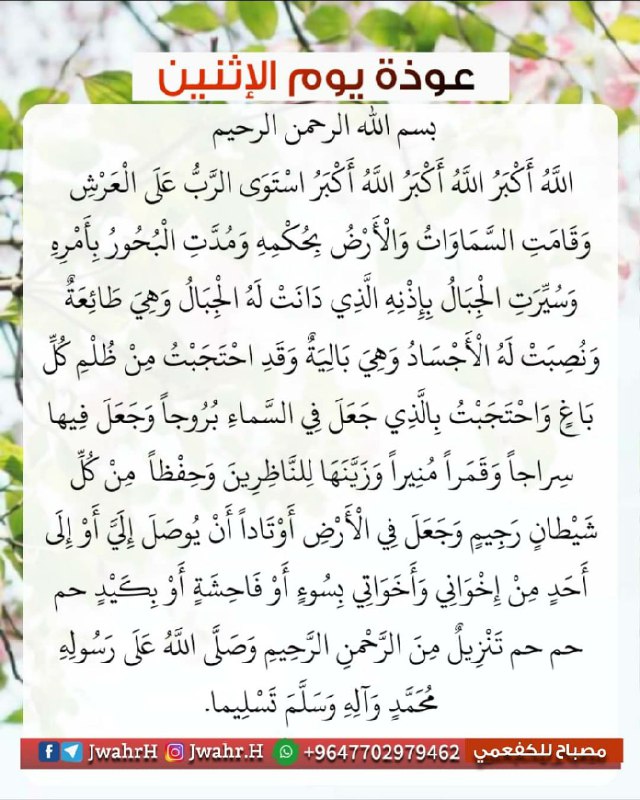 عوذة يوم الإثنين
بسم الله الرحمن الرحيم
اللَّهُ أَكْبَرُ اللَّهُ أَكْبَرُ اللَّهُ أَكْبَرُ اسْتَوَى الرَّبُّ عَلَى الْعَرْشِ
وَقَامَتِ السَّمَاوَاتُ وَالْأَرْضُ بِحُكْمِهِ وَمُدَّتِ الْبُحُورُ بِأَمْرِهِ
وَسُيِّرَتِ الْجِبَالُ بِإِذْنِهِ الَّذِي دَانَتْ لَهُ الْجِبَالُ وَهِيَ طَائِعَةٌ
وَنُصِبَتْ لَهُ الْأَجْسَادُ وَهِيَ بَالِيَةٌ وَقَدِ احْتَجَبْتُ مِنْ ظُلْمِ كُلِّ
بَاغٍ وَاحْتَجَبْتُ بِالَّذِي جَعَلَ فِي السَّماءِ بُرُوجاً وَجَعَلَ فِيها
سِراجاً وَقَمَراً مُنِيراً وَزَيَّنَهَا لِلنَّاظِرِينَ وَحِفْظاً مِنْ كُلِّ
شَيْطانٍ رَجِيمٍ وَجَعَلَ فِي الْأَرْضِ أَوْتَاداً أَنْ يُوصَلَ إِلَيَّ أَوْ إِلَى
أَحَدٍ مِنْ إِخْوَانِي وَأَخَوَاتِي بِسُوءٍ أَوْ فَاحِشَةٍ أَوْ بِكَيْدٍ حم
حم حم تَنْزِيلٌ مِنَ الرَّحْمنِ الرَّحِيمِ وَصَلَّى اللَّهُ عَلَى رَسُولِهِ
مُحَمَّدٍ وَآلِهِ وَسَلَّمَ تَسْلِيما.
JwahrH Jwahr.H +9647702979462 مصباح للكفعمي